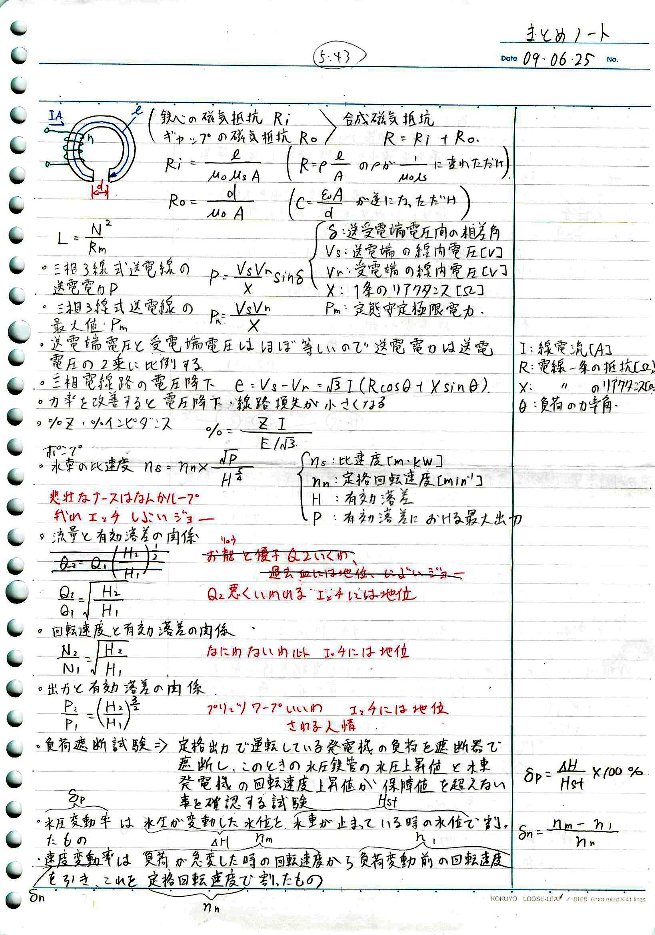 まとめノート
5.43
Date 09・06・25 No.
1A
l
n
d
鉄心の磁気抵抗 Ri
ギャップの磁気抵抗 Ro
合成磁気抵抗
R = Ri + Ro.
Ri = l / μoμsA (R=ρ l/A のρが 1/μoμs に変わただけ)
Ro = d / μoA (C= εoA/d が逆になっただけ)
L = N² / Rm
・三相3線式送電線の
送電電力P
P = VsVr/X sinδ
δ:送受電端電圧間の相差角
Vs:送電端の線内電圧[V]
Vr:受電端の線内電圧[V]
X : 1条のリアクタンス[Ω]
Pm : 定態安定極限電力.
・三相3線式送電線の
最大値・Pm
Pm = VsVr/X
・送電端電圧と受電端電圧はほぼ等しいので送電電力は送電
電圧の2乗に比例する
・三相電線路の電圧降下 e = Vs - Vr = √3 I (Rcosθ + Xsinθ).
I:線電流[A]
R:電線一条の抵抗[Ω]
X: 〃 のリアクタンス[Ω]
θ:負荷の力率角.
・力率を改善すると電圧降下・線路損失が小さくなる
・%Z・%インピダンス %= ZI / E/√3.
ポンプ
・水車の比速度 ns = nn × √P / H^5/4
ns:比速度[m・kW]
nn:定格回転速度[min⁻¹]
H :有効落差
P :有効落差における最大出力
悲壮なナースはなんかループ
我れ エッチ しよいジョー
・流量と有効落差の関係
Q2 = Q1 (H2/H1)^1/2
Q2/Q1 = √H2/H1
Q2悪くいわれる エッチには地位
・回転速度と有効落差の関係
N2/N1 = √H2/H1
なにわないわ エッチには地位
・出力と有効落差の関係
P2/P1 = (H2/H1)^3/2
プリッツワープいいわ エッチには地位
される人情
・負荷遮断試験⇒ 定格出力で運転している発電機の負荷を遮断器で
遮断し、このときの水圧鉄管の水圧上昇値と水車
発電機の回転速度上昇値が保障値を超えない
事を確認する試験
δp = ΔH/Hst × 100 %
δp
Hst
・水圧変動率は水圧が変動した水位と、水車が止まっている時の水位で割っ
たもの
ΔH
nm
n1
δn = nm - n1 / nn
・速度変動率は負荷が急変した時の回転速度から負荷変動前の回転速度
を引き、これを定格回転速度で割ったもの
δn
nn
KOKUYO LOOSE-LEAF